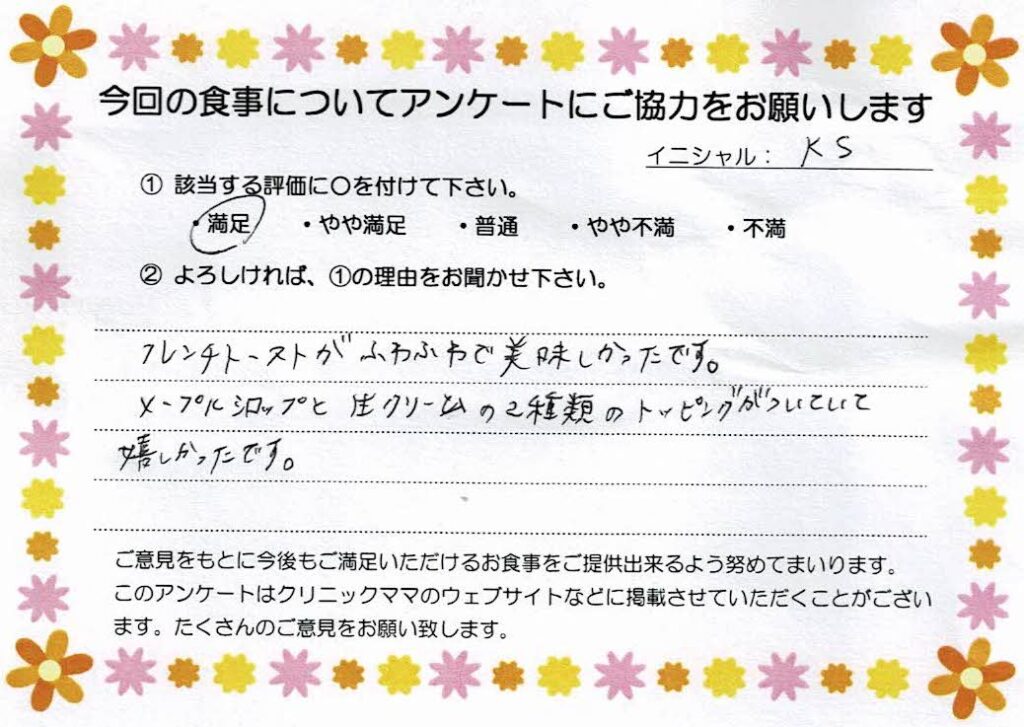 今回の食事についてアンケートにご協力をお願いします
イニシャル： KS
① 該当する評価に○を付けて下さい。
・満足 ・やや満足 ・普通 ・やや不満 ・不満
② よろしければ、①の理由をお聞かせ下さい。
フレンチトーストがふわふわで美味しかったです。
メープルシロップと生クリームの2種類のトッピングがついていて
嬉しかったです。
ご意見をもとに今後もご満足いただけるお食事をご提供出来るよう努めてまいります。
このアンケートはクリニックママのウェブサイトなどに掲載させていただくことがござい
ます。たくさんのご意見をお願い致します。